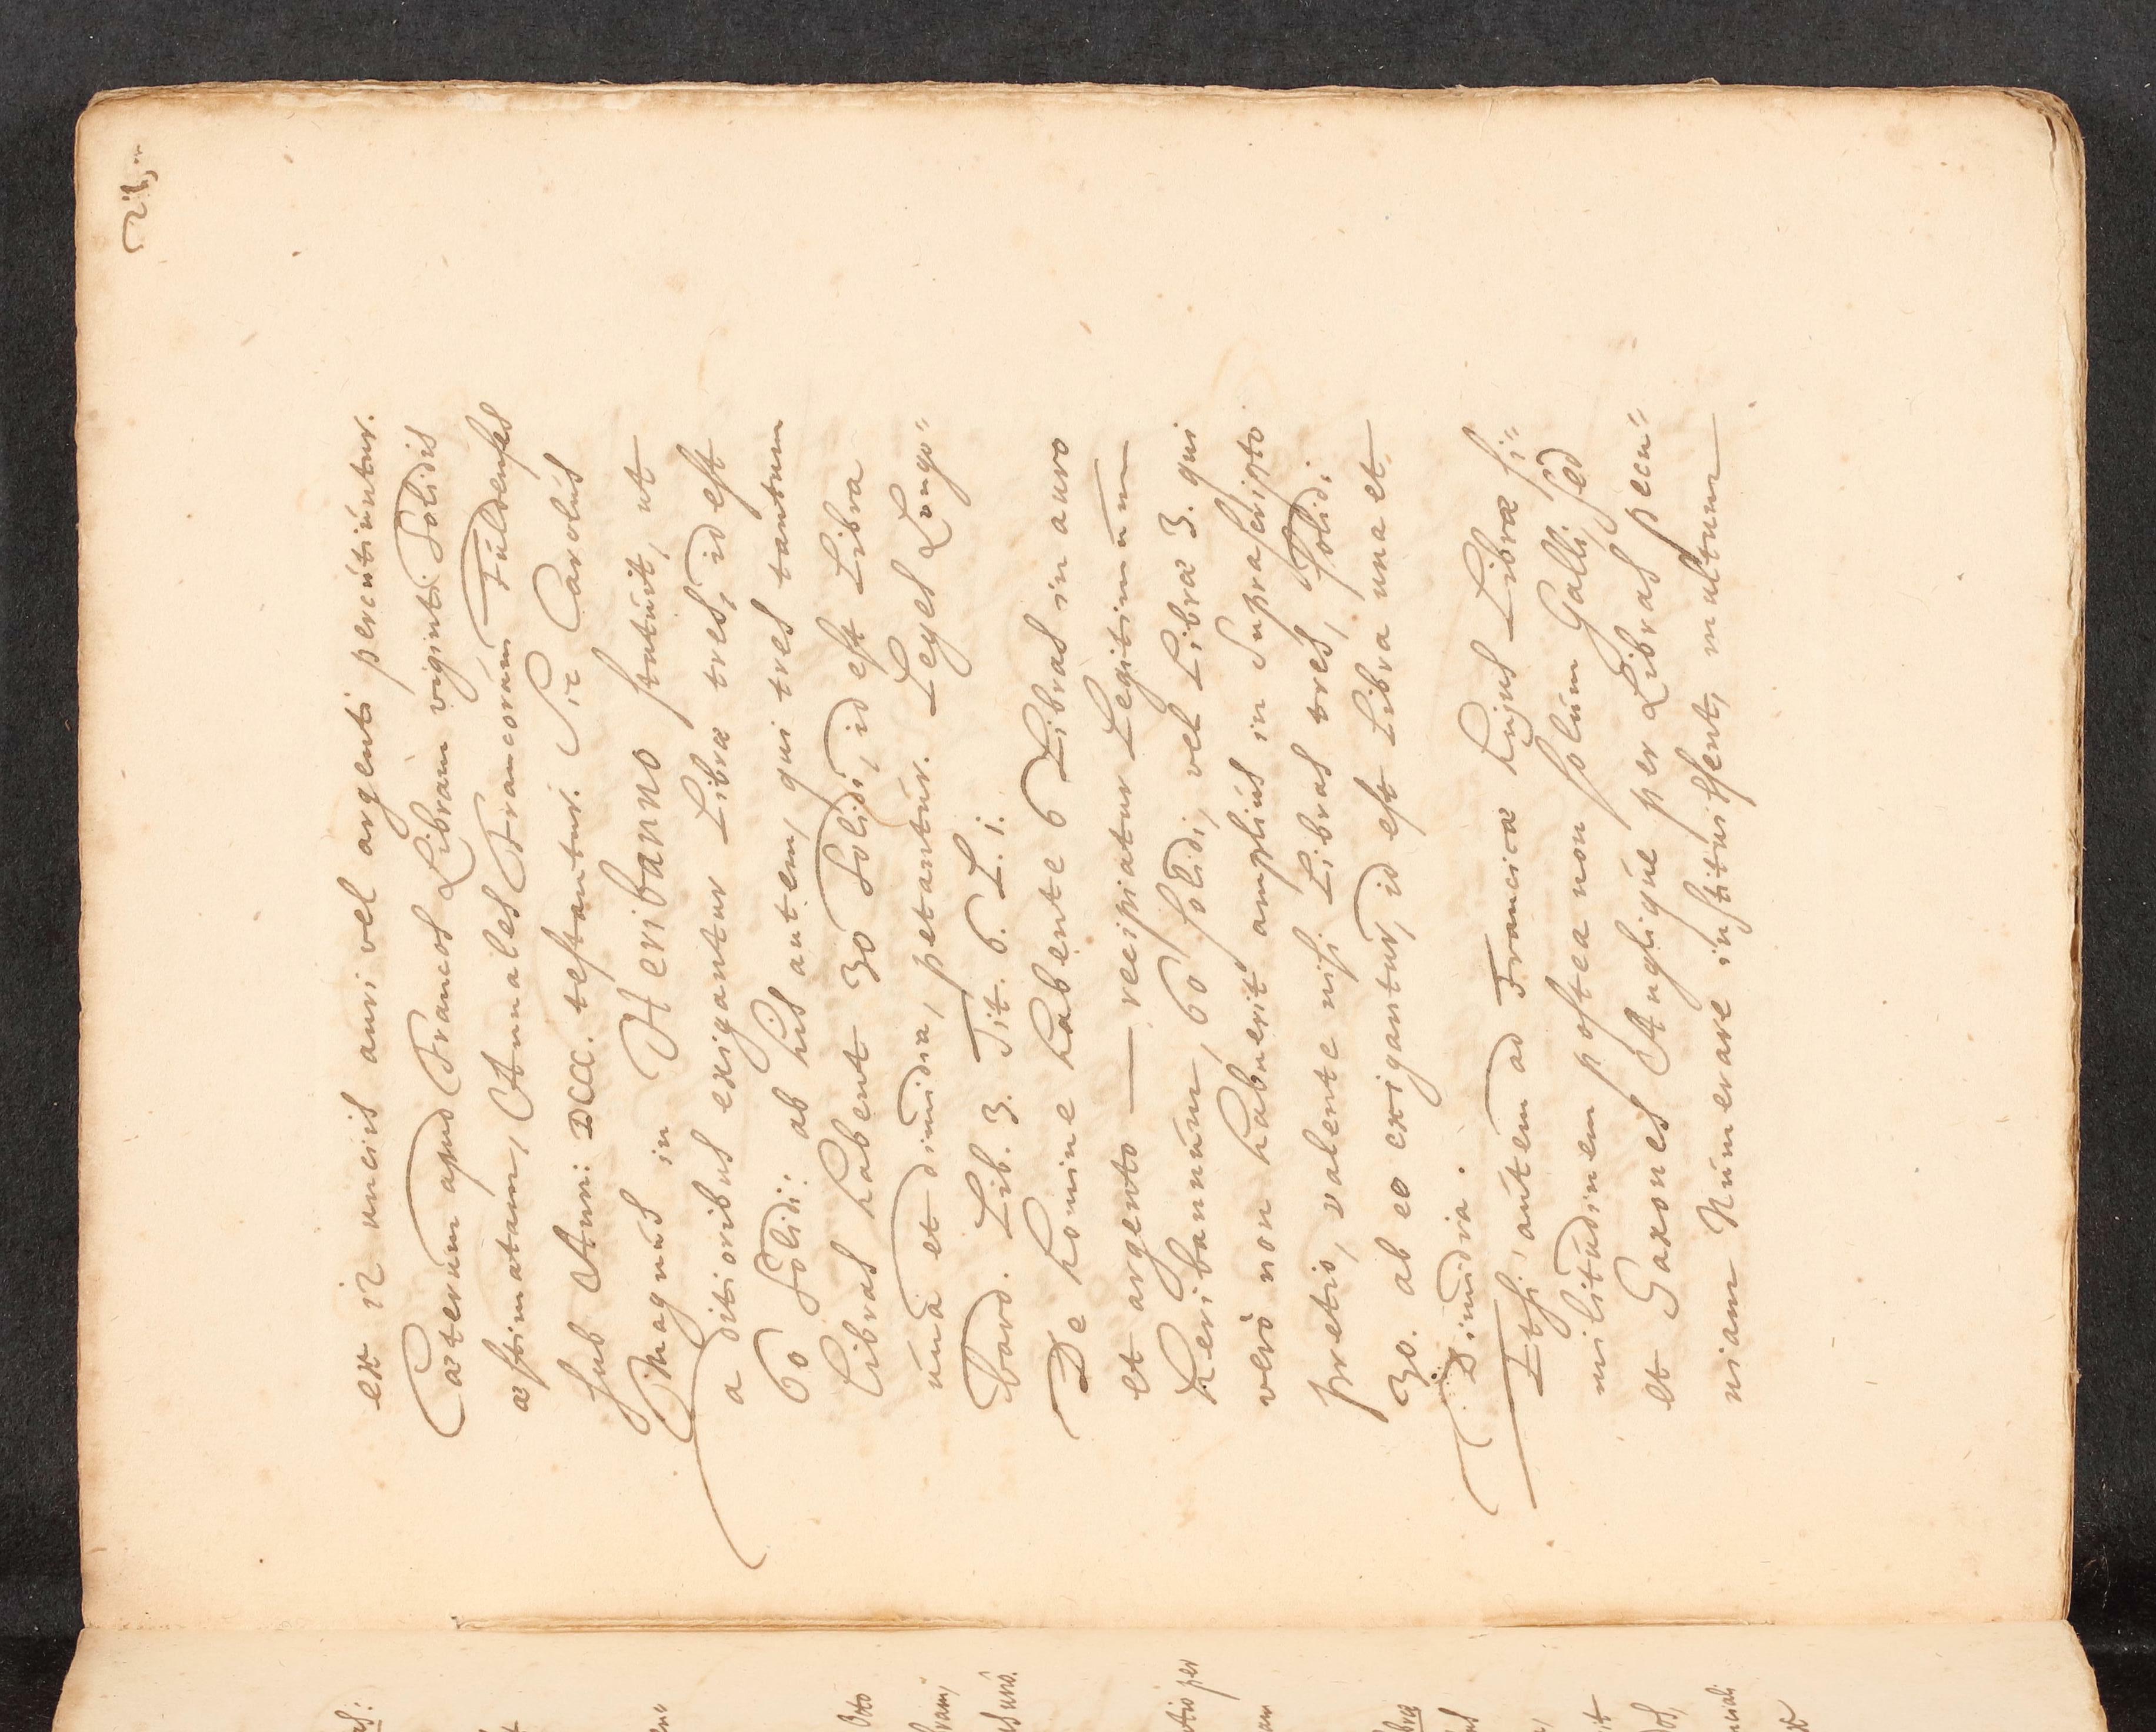 ex 12 unciis auri vel argenti percutiuntur.
Cæterùm apud Francos Libram viginti Solidis
æstimatam, Annales Francorum Fuldenses
sub Ann: DCCC. testantur. Sic Carolus
Magnus in Heribanno statuit, ut
a ditioribus exigantur Libræ tres, id est
60 Solidi: ab his autem, qui tres tantum
Libras habent 30 Solidi, id est Libra
una et dimidia, petantur. Leges Longo=
bard. Lib. 3. Tit. 6. L. i.
De homine habente 6 Libras in auro
et argento — recipiatur Legitimum
heribannum, 60 solidi, vel Libræ 3. qui
verò non habuerit amplius in Suprascripto
pretio, valente nisi Libras tres, solidi
30. ab eo exigantur, id est Libra una et
Dimidia.
Etsi autem ad Francicæ hujus Libræ si=
militudinem postea non solùm Galli sed
et Saxones Anglique per Libras pecu=
niam Numerare instituissent, multum